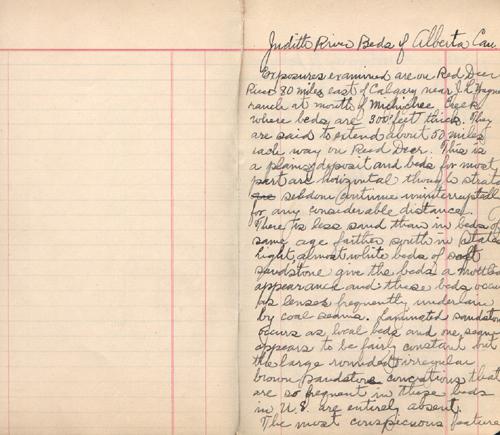 Judith River Beds of Alberta Can
Exposures examined are on Red Deer
River 80 miles east of Calgary near J. L.
ranch at mouth of Creek
where beds are 300 feet thick. They
are said to extend about 50 miles
each way on Reed Deer. This is
a plains deposit and beds for most
part are horizontal though strat
seldom continue uninterruptedl
for any considerable distance.
There is less sand than in beds of
same age farther south in States
light almost white beds of soft
sandstone give the beds a mottled
appearance and these beds occu
as lenses frequently underlain
by coal seams. Laminated sandston
occurs as local beds and one
appears to be fairly constant but
the large rounded irregular
brown sandstone concretions that
are so frequent in these beds
in U.S. are entirely absent.
The most conspicuous feature